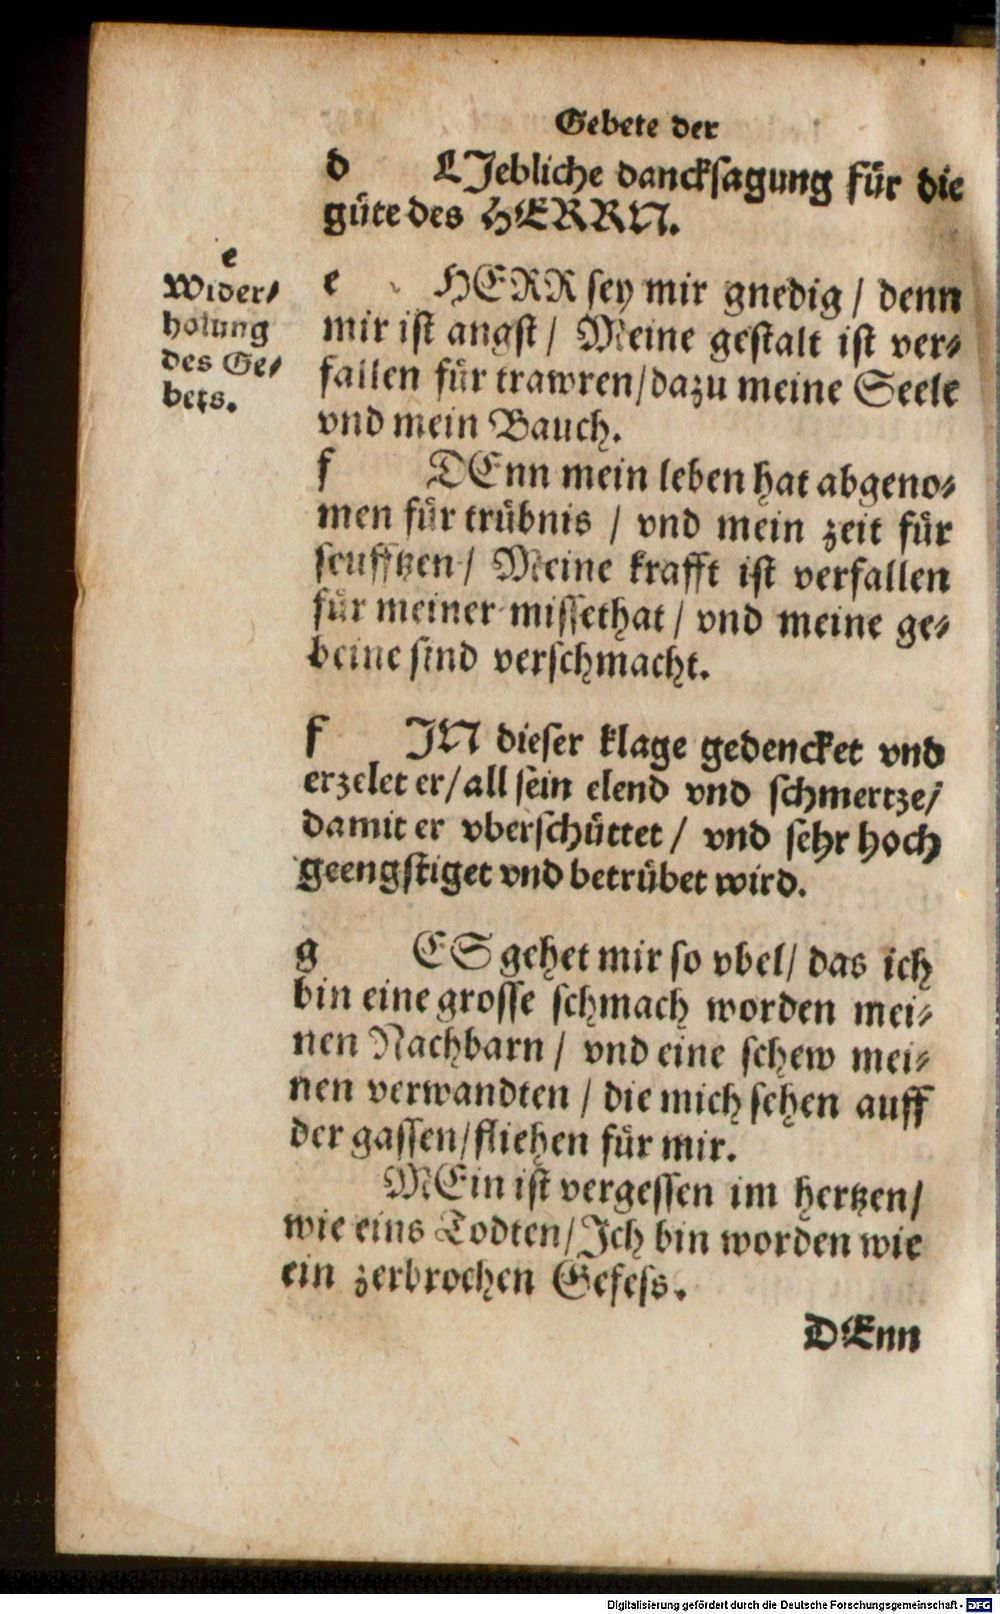 Gebete der
d LJebliche dancksagung für die
güte des HERRN.
e
Wider⸗
holung
des Ge⸗
bets.
e HERR sey mir gnedig / denn
mir ist angst / Meine gestalt ist ver⸗
fallen für trawren / dazu meine Seele
vnd mein Bauch.
f DEnn mein leben hat abgeno⸗
men für trübnis / vnd mein zeit für
seufftzen / Meine krafft ist verfallen
für meiner missethat / vnd meine ge⸗
beine sind verschmacht.
f JN dieser klage gedencket vnd
erzelet er / all sein elend vnd schmertze /
damit er vberschüttet / vnd sehr hoch
geengstiget vnd betrübet wird.
g ES gehet mir so vbel / das ich
bin eine grosse schmach worden mei⸗
nen Nachbarn / vnd eine schew mei⸗
nen verwandten / die mich sehen auff
der gassen / fliehen für mir.
MEin ist vergessen im hertzen /
wie eins Todten / Jch bin worden wie
ein zerbrochen Gefess.
DEnn
Digitalisierung gefördert durch die Deutsche Forschungsgemeinschaft - DFG